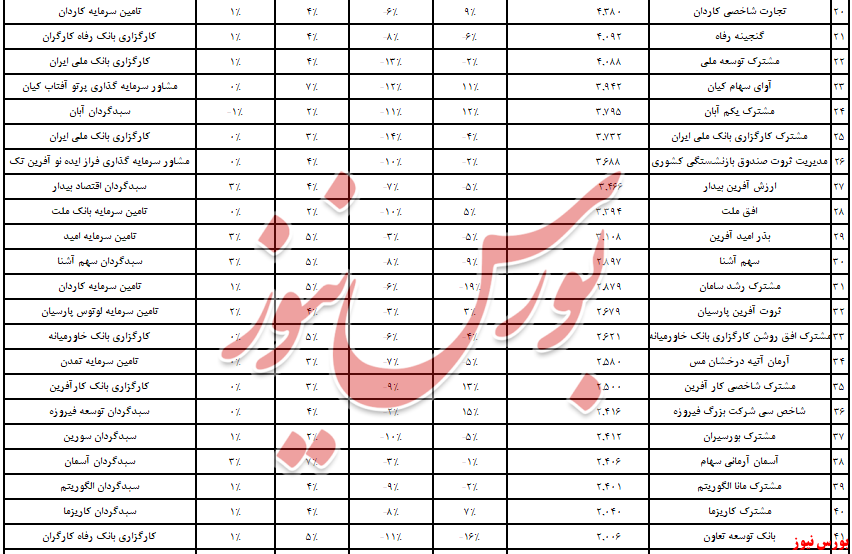 ۲۰ تجارت شاخصی کاردان ۴.۳۸۰ ۹٪ -۶٪ ۴٪ ۱٪ تامین سرمایه کاردان
۲۱ گنجینه رفاه ۴.۰۹۲ -۶٪ -۸٪ ۴٪ ۱٪ کارگزاری بانک رفاه کارگران
۲۲ مشترک توسعه ملی ۴.۰۸۸ -۲٪ -۱۳٪ ۴٪ ۱٪ کارگزاری بانک ملی ایران
۲۳ آوای سهام کیان ۳.۹۴۲ ۱۱٪ -۱۲٪ ۷٪ ۰٪ مشاور سرمایه گذاری پرتو آفتاب کیان
۲۴ مشترک یکم آبان ۳.۷۹۵ ۱۲٪ -۱۱٪ ۲٪ -۱٪ سبدگردان آبان
۲۵ مشترک کارگزاری بانک ملی ایران ۳.۷۳۲ -۴٪ -۱۴٪ ۳٪ ۰٪ کارگزاری بانک ملی ایران
۲۶ مدیریت ثروت صندوق بازنشستگی کشوری ۳.۶۸۸ -۲٪ -۱۰٪ ۴٪ ۰٪ مشاور سرمایه گذاری فراز ایده نو آفرین تک
۲۷ ارزش آفرین بیدار ۳.۴۶۶ -۵٪ -۷٪ ۴٪ ۳٪ سبدگردان اقتصاد بیدار
۲۸ افق ملت ۳.۳۹۴ ۵٪ -۱۰٪ ۲٪ ۰٪ تامین سرمایه بانک ملت
۲۹ بذر امید آفرین ۳.۱۰۸ -۵٪ -۳٪ ۵٪ ۳٪ تامین سرمایه امید
۳۰ سهم آشنا ۲.۸۹۷ -۹٪ -۸٪ ۵٪ ۳٪ سبدگردان سهم آشنا
۳۱ مشترک رشد سامان ۲.۸۷۹ -۱۹٪ -۶٪ ۵٪ ۱٪ تامین سرمایه کاردان
۳۲ ثروت آفرین پارسیان ۲.۶۷۹ ۳٪ -۳٪ ۴٪ ۲٪ تامین سرمایه لوتوس پارسیان
۳۳ مشترک افق روشن کارگزاری بانک خاورمیانه ۲.۶۲۱ -۴٪ -۶٪ ۵٪ ۰٪ کارگزاری بانک خاورمیانه
۳۴ آرمان آتیه درخشان مس ۲.۵۸۰ -۵٪ -۷٪ ۳٪ ۰٪ تامین سرمایه تمدن
۳۵ مشترک شاخصی کار آفرین ۲.۵۰۰ ۱۳٪ -۹٪ ۳٪ ۰٪ کارگزاری بانک کارآفرین
۳۶ شاخص سی شرکت بزرگ فیروزه ۲.۴۱۶ ۱۵٪ -۲٪ ۴٪ ۰٪ سبدگردان توسعه فیروزه
۳۷ مشترک بورسیران ۲.۴۱۲ -۵٪ -۱۰٪ ۲٪ ۱٪ سبدگردان سورین
۳۸ آسمان آرمانی سهام ۲.۴۰۶ -۱٪ -۳٪ ۷٪ ۳٪ سبدگردان آسمان
۳۹ مشترک مانا الگوریتم ۲.۴۰۱ -۲٪ -۹٪ ۴٪ ۱٪ سبدگردان الگوریتم
۴۰ مشترک کاریزما ۲.۰۴۰ ۷٪ -۸٪ ۴٪ ۱٪ سبدگردان کاریزما
۴۱ بانک توسعه تعاون ۲.۰۰۶ -۱۶٪ -۱۱٪ ۵٪ ۱٪ کارگزاری بانک رفاه کارگران
بورس نیوز
بورس نیوز